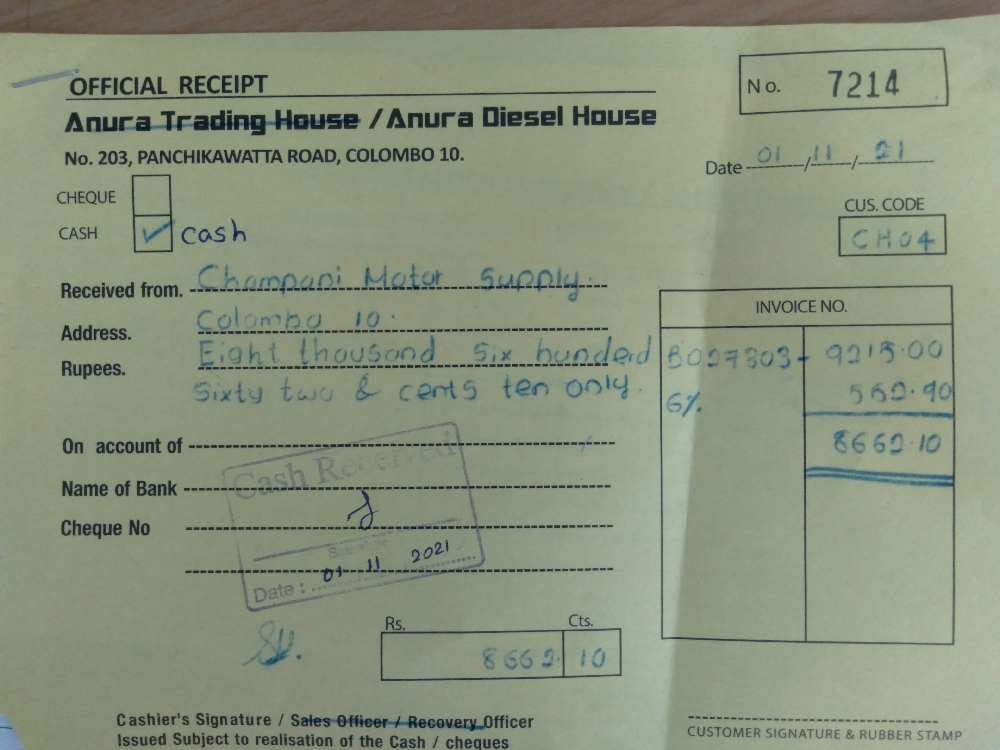 OFFICIAL RECEIPT
No. 7214
Anura Trading House / Anura Diesel House
No. 203, PANCHIKAWATTA ROAD, COLOMBO 10.
Date 01/11/21
CHEQUE
CASH ✓ cash
CUS. CODE
CH04
Received from. Champani Motor Supply.
Address. Colombo 10.
Rupees. Eight thousand six hunded
sixty two & cents ten only.
INVOICE NO.
B027303- 9215.00
6% 552.90
8662.10
On account of
Name of Bank
Cheque No
Cash Received
Signature
Date : 01 11 2021
Rs. Cts.
8662. 10
Cashier's Signature / Sales Officer / Recovery Officer
Issued Subject to realisation of the Cash / cheques
CUSTOMER SIGNATURE & RUBBER STAMP